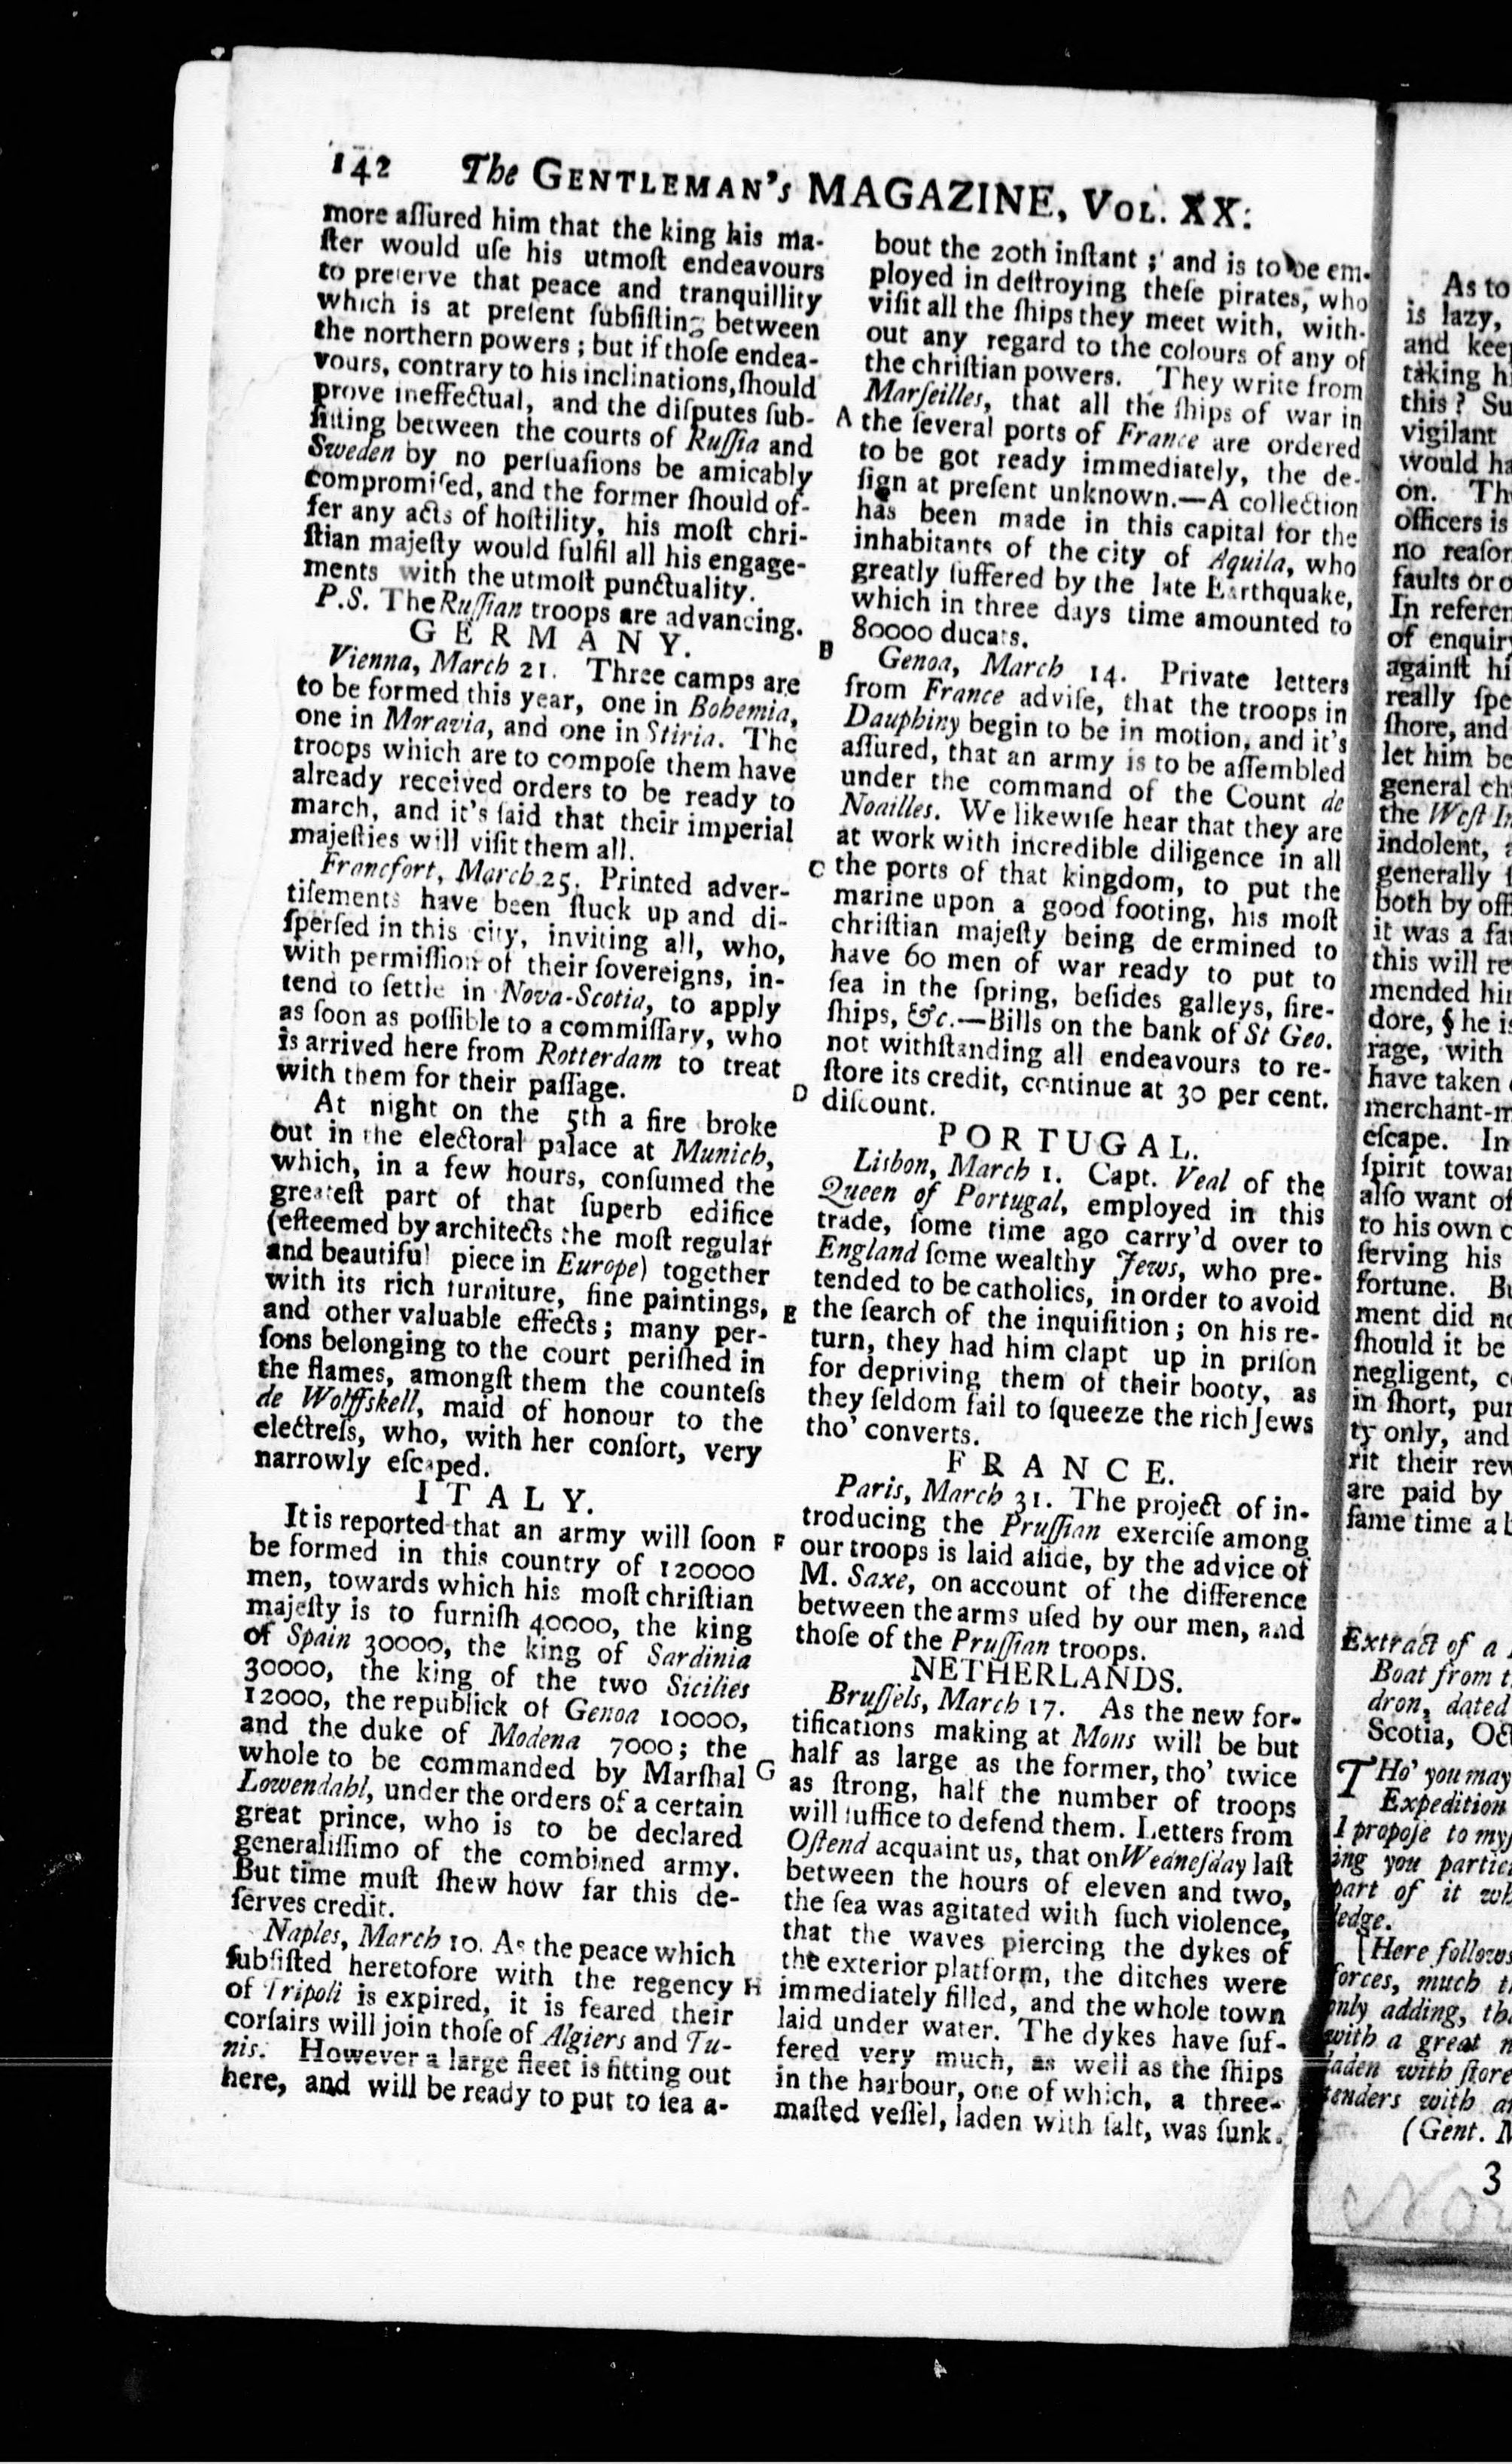 142 The GENTLEMAN's MAGAZINE, VOL. XX:
more aſſured him that the king his ma-
ſter would uſe his utmoſt endeavours
to preſerve that peace and tranquillity
which is at preſent ſubſiſting between
the northern powers; but if thoſe endea-
vours, contrary to his inclinations, ſhould
prove ineffectual, and the diſputes ſub-
ſiſting between the courts of Ruſſia and
Sweden by no perſuaſions be amicably
compromiſed, and the former ſhould of-
fer any acts of hoſtility, his moſt chri-
ſtian majeſty would fulfil all his engage-
ments with the utmoſt punctuality.
P.S. The Ruſſian troops are advancing.
GERMANY.
Vienna, March 21. Three camps are
to be formed this year, one in Bohemia,
one in Moravia, and one in Stiria. The
troops which are to compoſe them have
already received orders to be ready to
march, and it's ſaid that their imperial
majeſties will viſit them all.
Francfort, March 25. Printed adver-
tiſements have been ſtuck up and di-
ſperſed in this city, inviting all, who,
with permiſſion of their ſovereigns, in-
tend to ſettle in Nova-Scotia, to apply
as ſoon as poſſible to a commiſſary, who
is arrived here from Rotterdam to treat
with them for their paſſage.
At night on the 5th a fire broke
out in the electoral palace at Munich,
which, in a few hours, conſumed the
greateſt part of that ſuperb edifice
(eſteemed by architects the moſt regular
and beautiful piece in Europe) together
with its rich furniture, fine paintings,
and other valuable effects; many per-
ſons belonging to the court periſhed in
the flames, amongſt them the counteſs
de Wolffskell, maid of honour to the
electreſs, who, with her conſort, very
narrowly eſcaped.
ITALY.
It is reported that an army will ſoon
be formed in this country of 120000
men, towards which his moſt chriſtian
majeſty is to furniſh 40000, the king
of Spain 30000, the king of Sardinia
30000, the king of the two Sicilies
12000, the republick of Genoa 10000,
and the duke of Modena 7000; the
whole to be commanded by Marſhal
Lowendahl, under the orders of a certain
great prince, who is to be declared
generaliſſimo of the combined army.
But time muſt ſhew how far this de-
ſerves credit.
Naples, March 10. As the peace which
ſubſiſted heretofore with the regency
of Tripoli is expired, it is feared their
corſairs will join thoſe of Algiers and Tu-
nis. However a large fleet is fitting out
here, and will be ready to put to ſea a-
bout the 20th inſtant; and is to be em-
ployed in deſtroying theſe pirates, who
viſit all the ſhips they meet with, with-
out any regard to the colours of any of
the chriſtian powers. They write from
Marſeilles, that all the ſhips of war in
A the ſeveral ports of France are ordered
to be got ready immediately, the de-
ſign at preſent unknown.—A collection
has been made in this capital for the
inhabitants of the city of Aquila, who
greatly ſuffered by the late Earthquake,
which in three days time amounted to
B 80000 ducats.
Genoa, March 14. Private letters
from France adviſe, that the troops in
Dauphiny begin to be in motion, and it's
aſſured, that an army is to be aſſembled
under the command of the Count de
Noailles. We likewiſe hear that they are
at work with incredible diligence in all
C the ports of that kingdom, to put the
marine upon a good footing, his moſt
chriſtian majeſty being de ermined to
have 60 men of war ready to put to
ſea in the ſpring, beſides galleys, fire-
ſhips, &c.—Bills on the bank of St Geo.
not withſtanding all endeavours to re-
ſtore its credit, continue at 30 per cent.
D diſcount.
PORTUGAL.
Lisbon, March 1. Capt. Veal of the
Queen of Portugal, employed in this
trade, ſome time ago carry'd over to
England ſome wealthy Jews, who pre-
tended to be catholics, in order to avoid
E the ſearch of the inquiſition; on his re-
turn, they had him clapt up in priſon
for depriving them of their booty, as
they ſeldom fail to ſqueeze the rich Jews
tho' converts.
FRANCE.
Paris, March 31. The project of in-
troducing the Pruſſian exerciſe among
F our troops is laid aſide, by the advice of
M. Saxe, on account of the difference
between the arms uſed by our men, and
thoſe of the Pruſſian troops.
NETHERLANDS.
Bruſſels, March 17. As the new for-
tifications making at Mons will be but
half as large as the former, tho' twice
G as ſtrong, half the number of troops
will ſuffice to defend them. Letters from
Oſtend acquaint us, that on Wedneſday laſt
between the hours of eleven and two,
the ſea was agitated with ſuch violence,
that the waves piercing the dykes of
the exterior platform, the ditches were
H immediately filled, and the whole town
laid under water. The dykes have ſuf-
fered very much, as well as the ſhips
in the harbour, one of which, a three-
maſted veſſel, laden with ſalt, was ſunk.
As to
is lazy,
and keep
taking h
this? Su
vigilant
would ha
on. Th
officers is
no reaſon
faults or o
In referen
of enquiry
againſt hi
really ſpe
ſhore, and
let him be
general ch
the Weſt In
indolent, a
generally ſ
both by off
it was a fa
this will re
mended him
dore, § he is
rage, with
have taken
merchant-m
eſcape. In
ſpirit towar
alſo want of
to his own c
ſerving his
fortune. Bu
ment did no
ſhould it be
negligent, c
in ſhort, pur
ty only, and
rit their rew
are paid by
ſame time a b
Extract of a
Boat from t
dron, dated
Scotia, Oct
THo' you may
Expedition
I propoſe to myſ
ing you partic
part of it wh
ledge.
[Here follows
forces, much t
only adding, tha
with a great n
laden with ſtore
tenders with a
(Gent. M
3